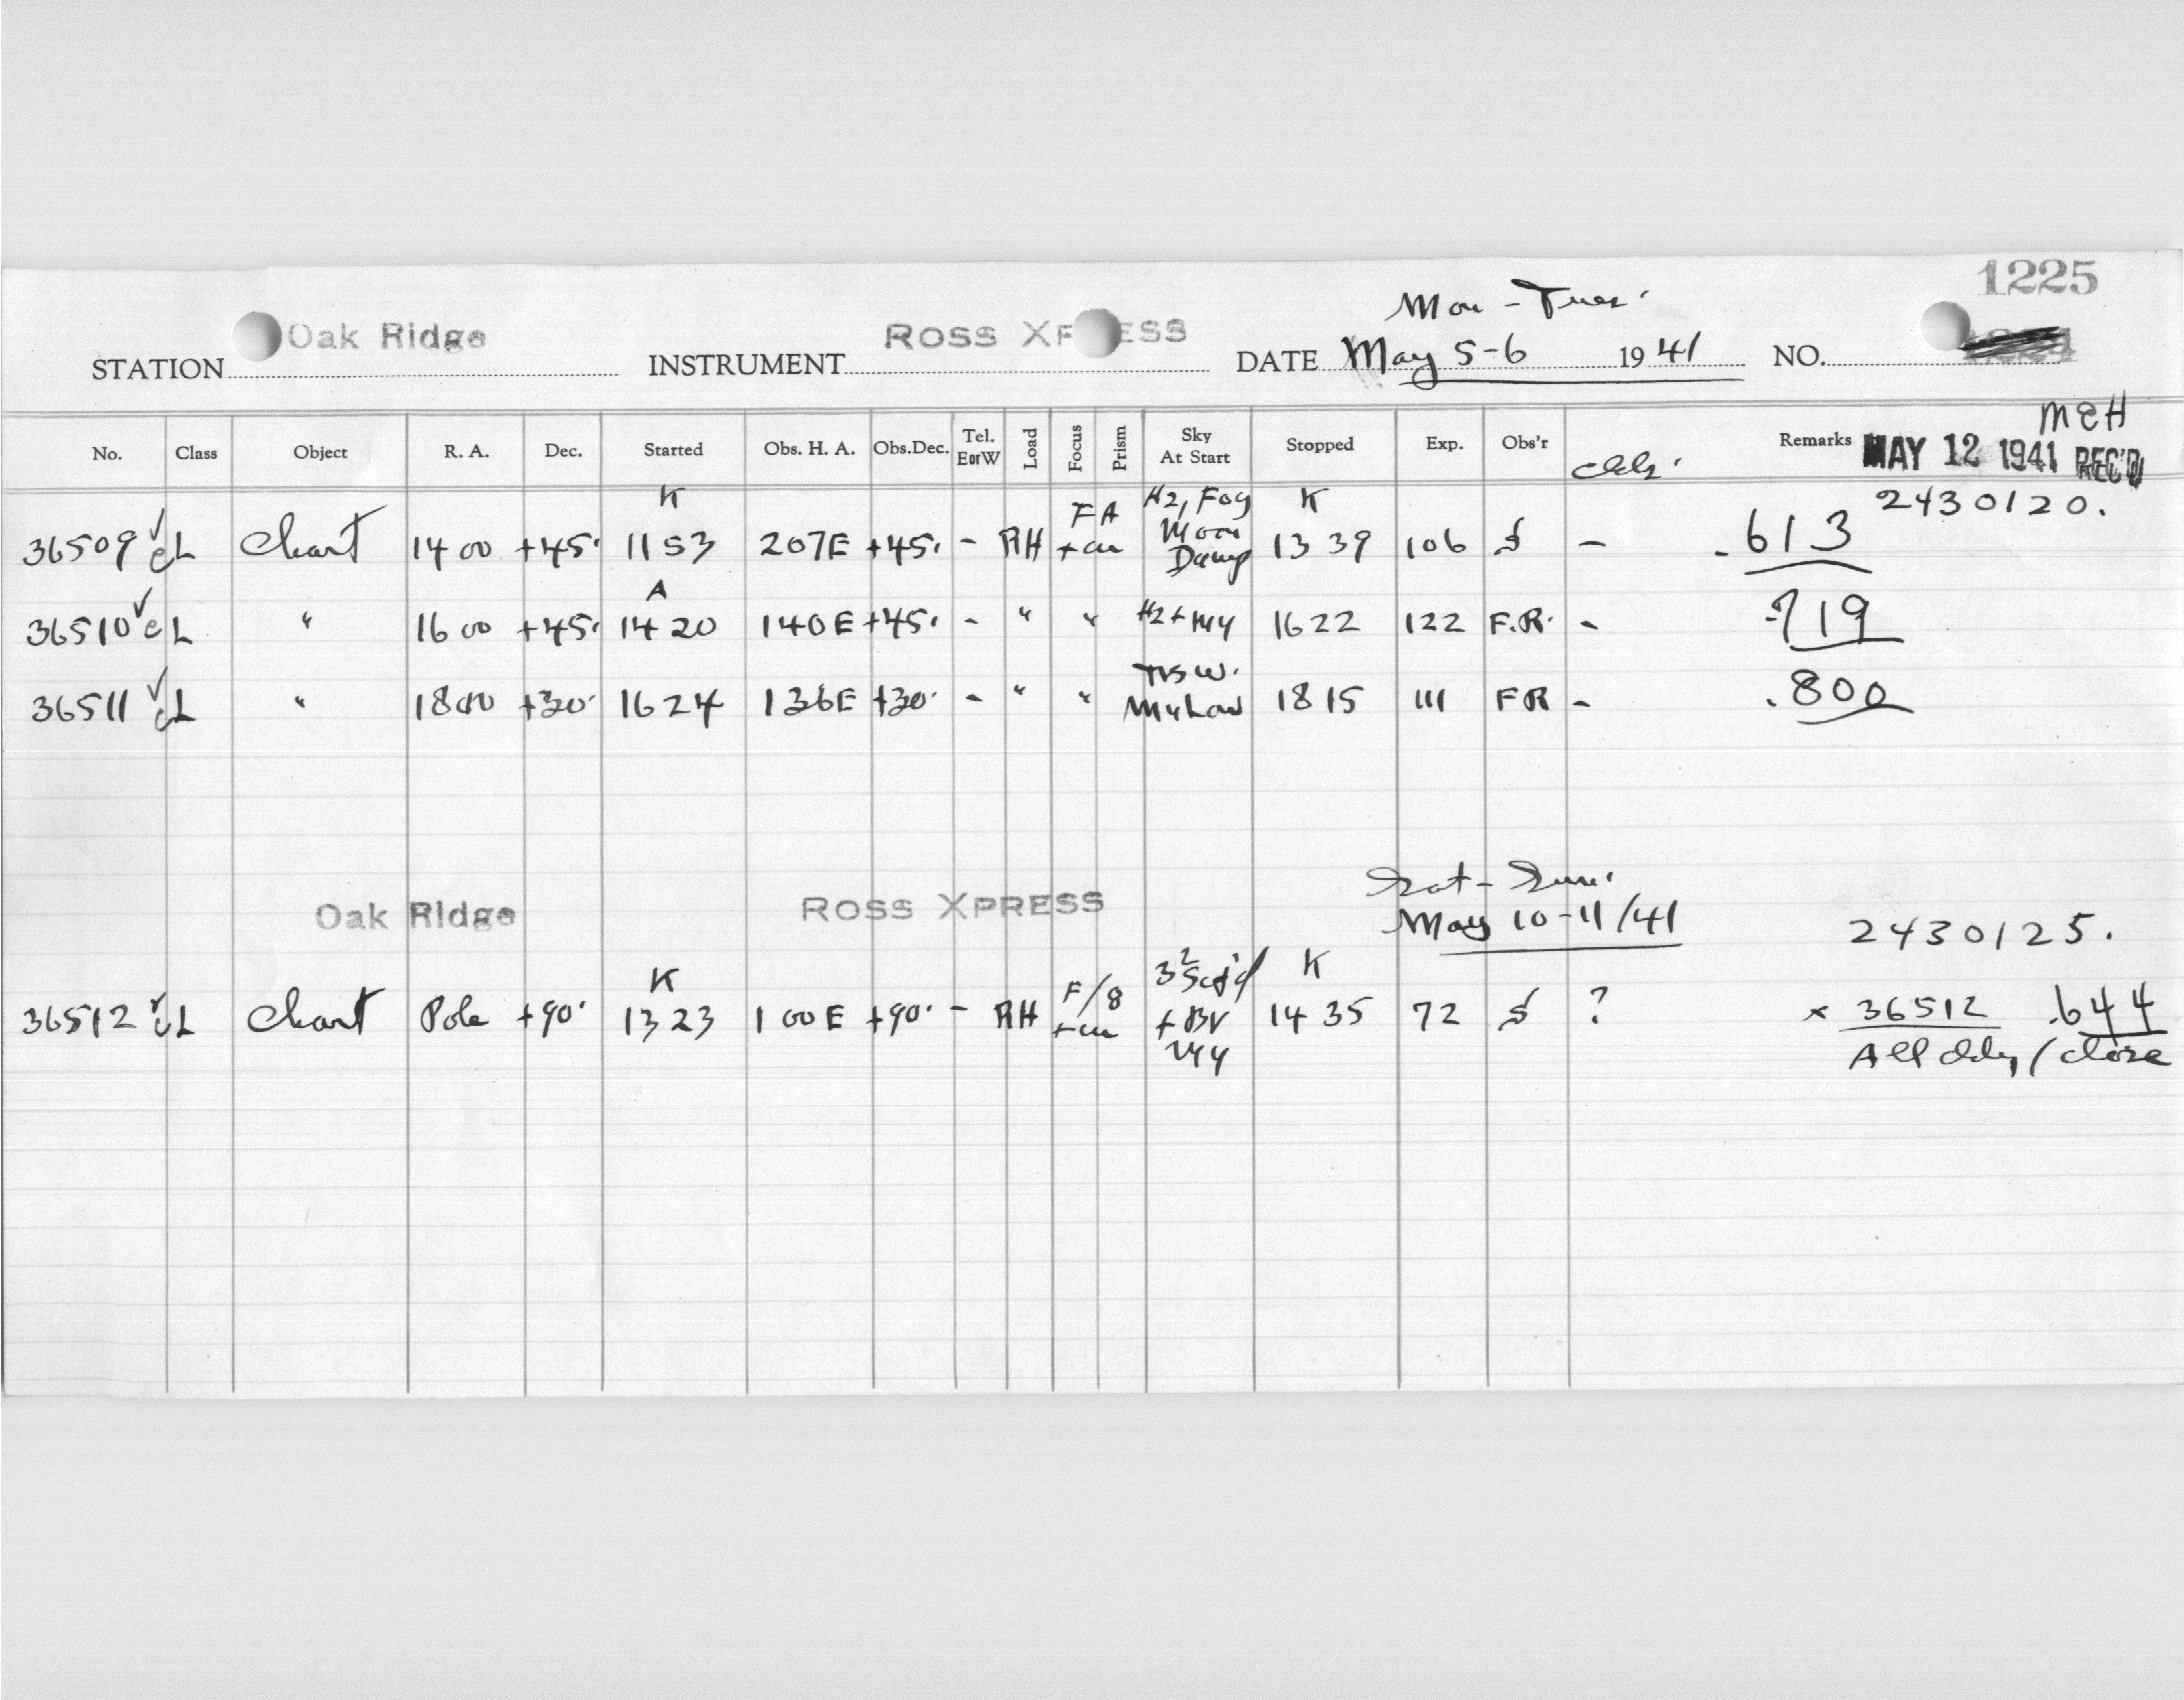 1225
Mon - Tues.
STATION Oak Ridge INSTRUMENT ROSS XPRESS DATE May 5-6 1941 NO.
MEH
No. Class Object R. A. Dec. Started Obs. H. A. Obs.Dec. Tel. EorW Load Focus Prism Sky At Start Stopped Exp. Obs'r Remarks MAY 12 1941 REC'D
2430120.
36509 ✓ cL Chart 14 00 +45. K 11 53 207E +45. - RH FA Hz, Fog Moon Damp K 13 39 106 - .613
36510 ✓ cL " 16 00 +45. A 14 20 140E +45. - " " Hz + 16 22 122 F.R. - .719
36511 ✓ cL " 18 00 +30. 16 24 136E +30. - " " 18 15 111 FR - .800
Oak Ridge ROSS XPRESS Sat - Sun.
May 10-11/41 2430125.
36512 ✓ cL Chart Pole +90. K 13 23 1 00 E +90. - RH F/8 K 14 35 72 ? x 36512 .644
All / close